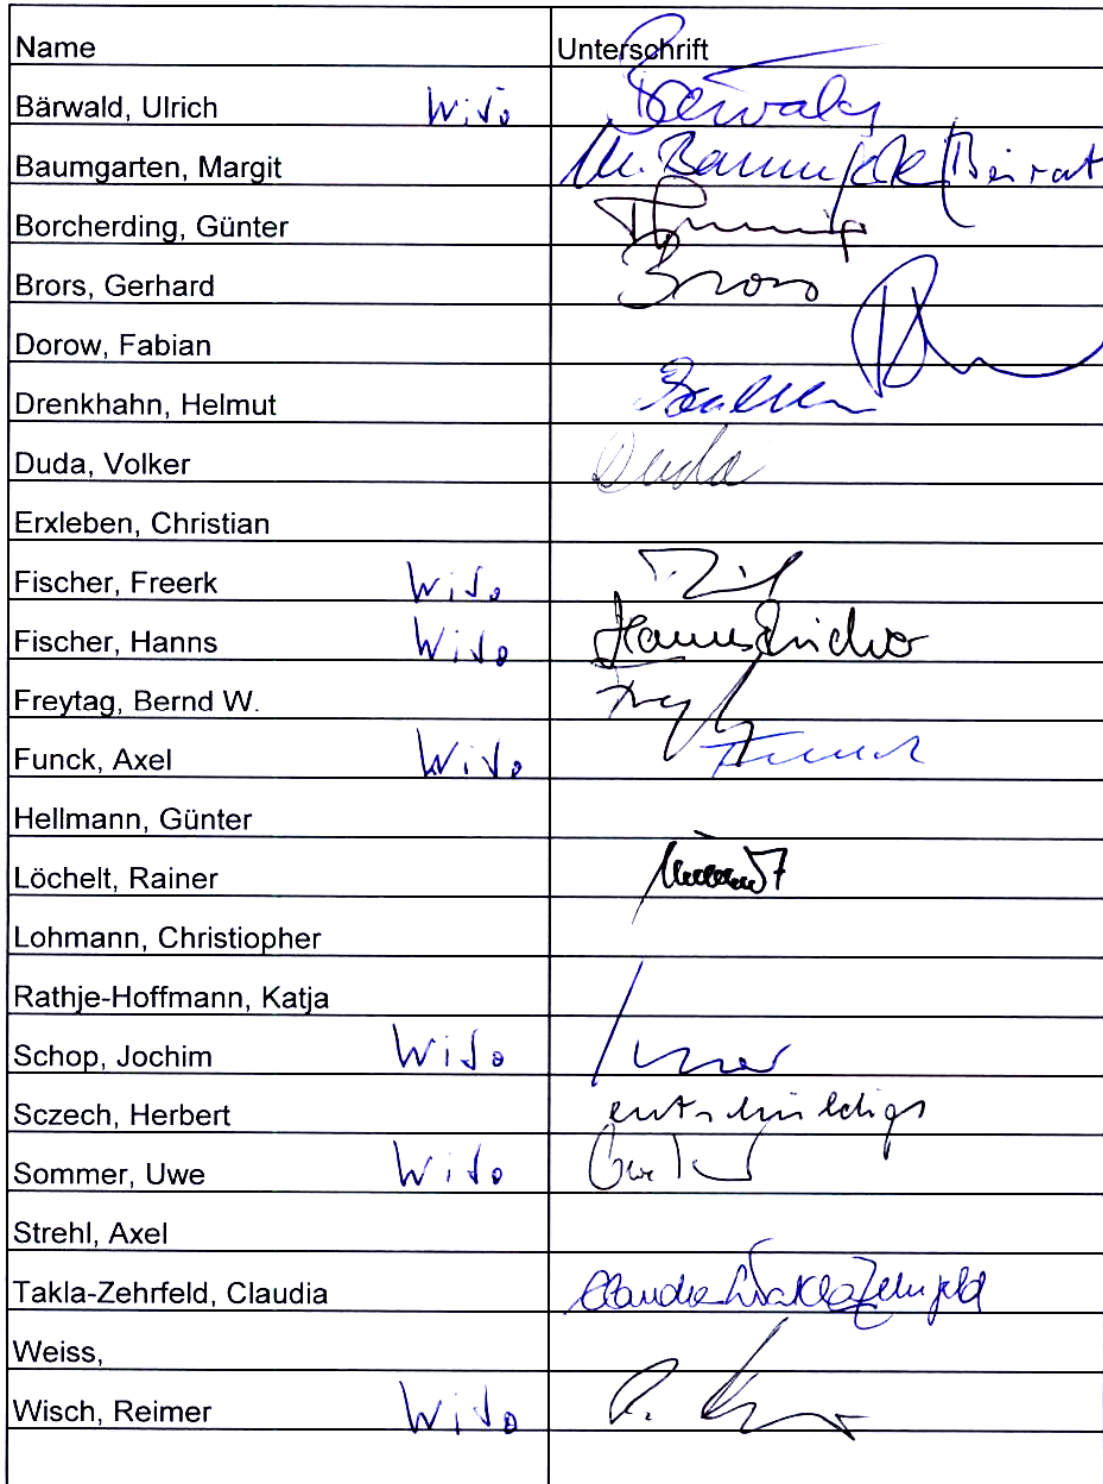 Name Unterschrift
Bärwald, Ulrich WiSo Bärwald
Baumgarten, Margit M. Baumg Beirat
Borcherding, Günter
Brors, Gerhard Brors
Dorow, Fabian
Drenkhahn, Helmut
Duda, Volker Duda
Erxleben, Christian
Fischer, Freerk WiSo
Fischer, Hanns WiSo Hanns Fischer
Freytag, Bernd W.
Funck, Axel WiSo Funck
Hellmann, Günter
Löchelt, Rainer
Lohmann, Christiopher
Rathje-Hoffmann, Katja
Schop, Jochim WiSo
Sczech, Herbert entschuldigt
Sommer, Uwe WiSo Uwe
Strehl, Axel
Takla-Zehrfeld, Claudia Claudia Takla Zehrfeld
Weiss,
Wisch, Reimer WiSo R.